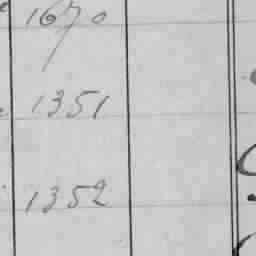 1670
1351
1352